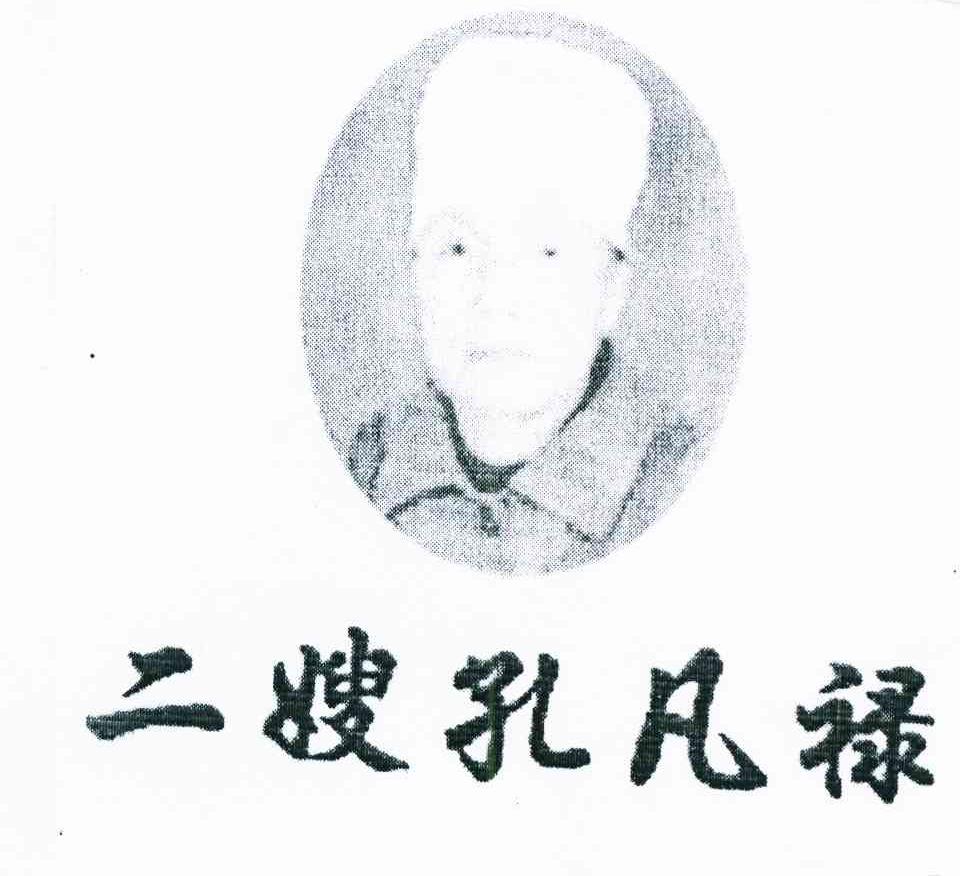 二嫂孔凡禄